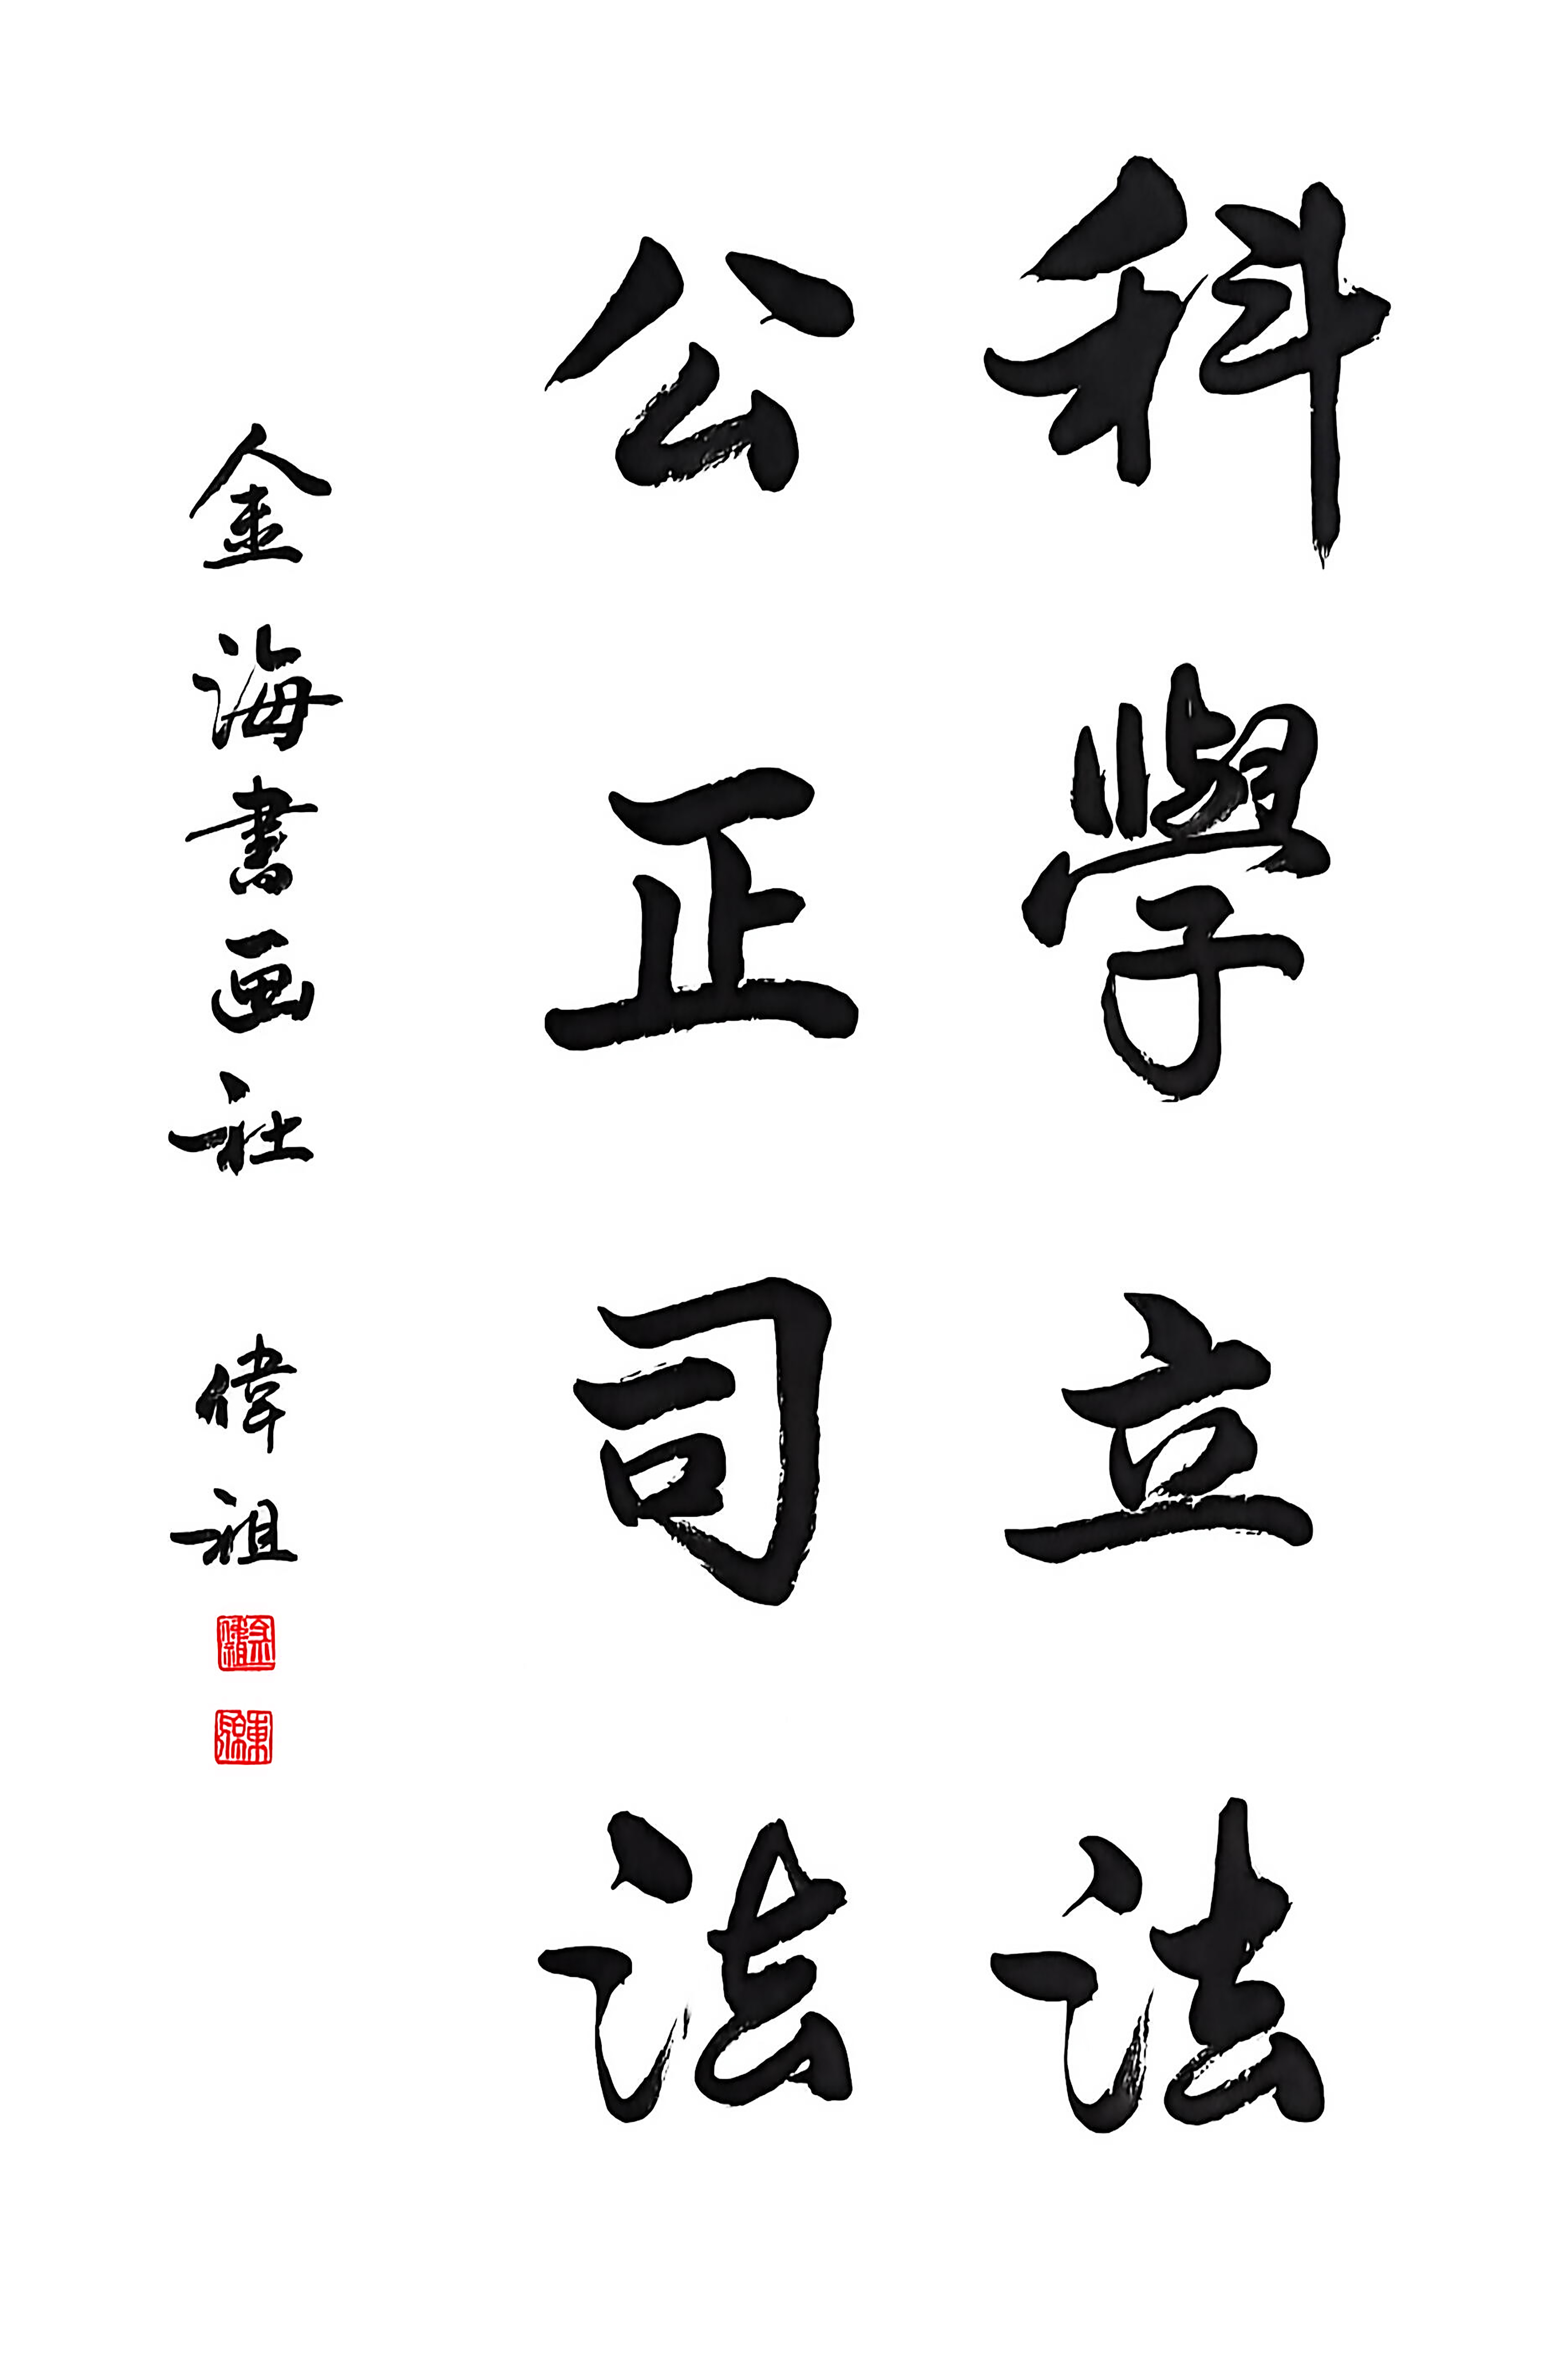 科學立法
公正司法
金海書画社 偉祖